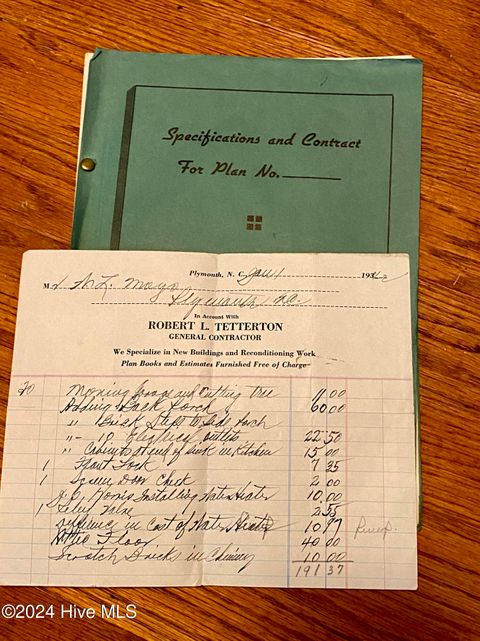 Specifications and Contract
For Plan No.
Plymouth, N. C., Jan 1 194
M W. L. Mayo
Plymouth N.C.
In Account With
ROBERT L. TETTERTON
GENERAL CONTRACTOR
We Specialize in New Buildings and Reconditioning Work
Plan Books and Estimates Furnished Free of Charge
Moving Garage and Cutting tree 11 00
Adding Back Porch 60 00
" Brick Steps to Side Porch
" 18 outlets 22 50
" Cabinets at end of Sink in Kitchen 15 00
1 Front Lock 7 35
1 Screen Door Check 2 00
Installing Water Heater 10 00
1 Relief Valve 2 55
difference in Cost of Water Heater 10 97
Attic Floor 40 00
Scratch Bricks in Chimney 10 00
191 37
©2024 Hive MLS